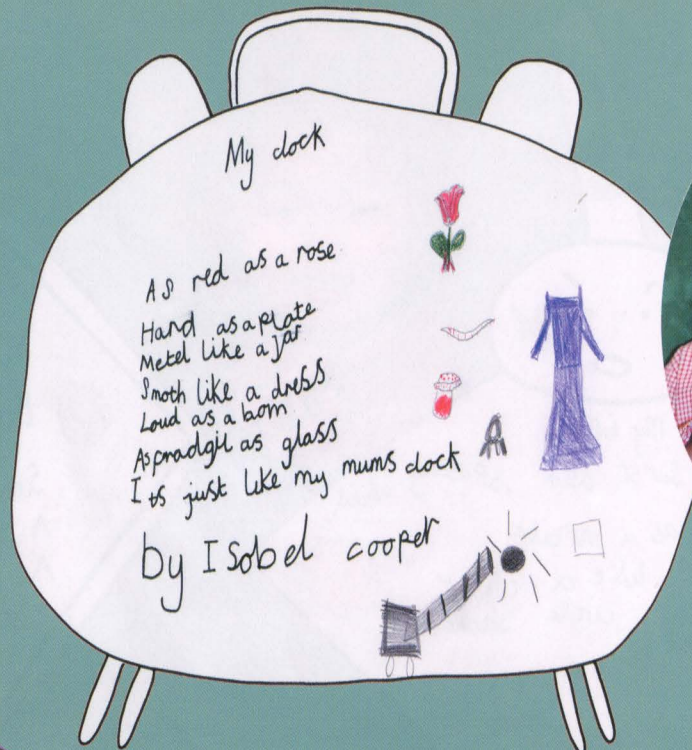 My clock
As red as a rose
Hard as a plate
Metel like a jar
Smoth like a dress
Loud as a bom
As pradgil as glass
Its just like my mums clock
by Isobel cooper